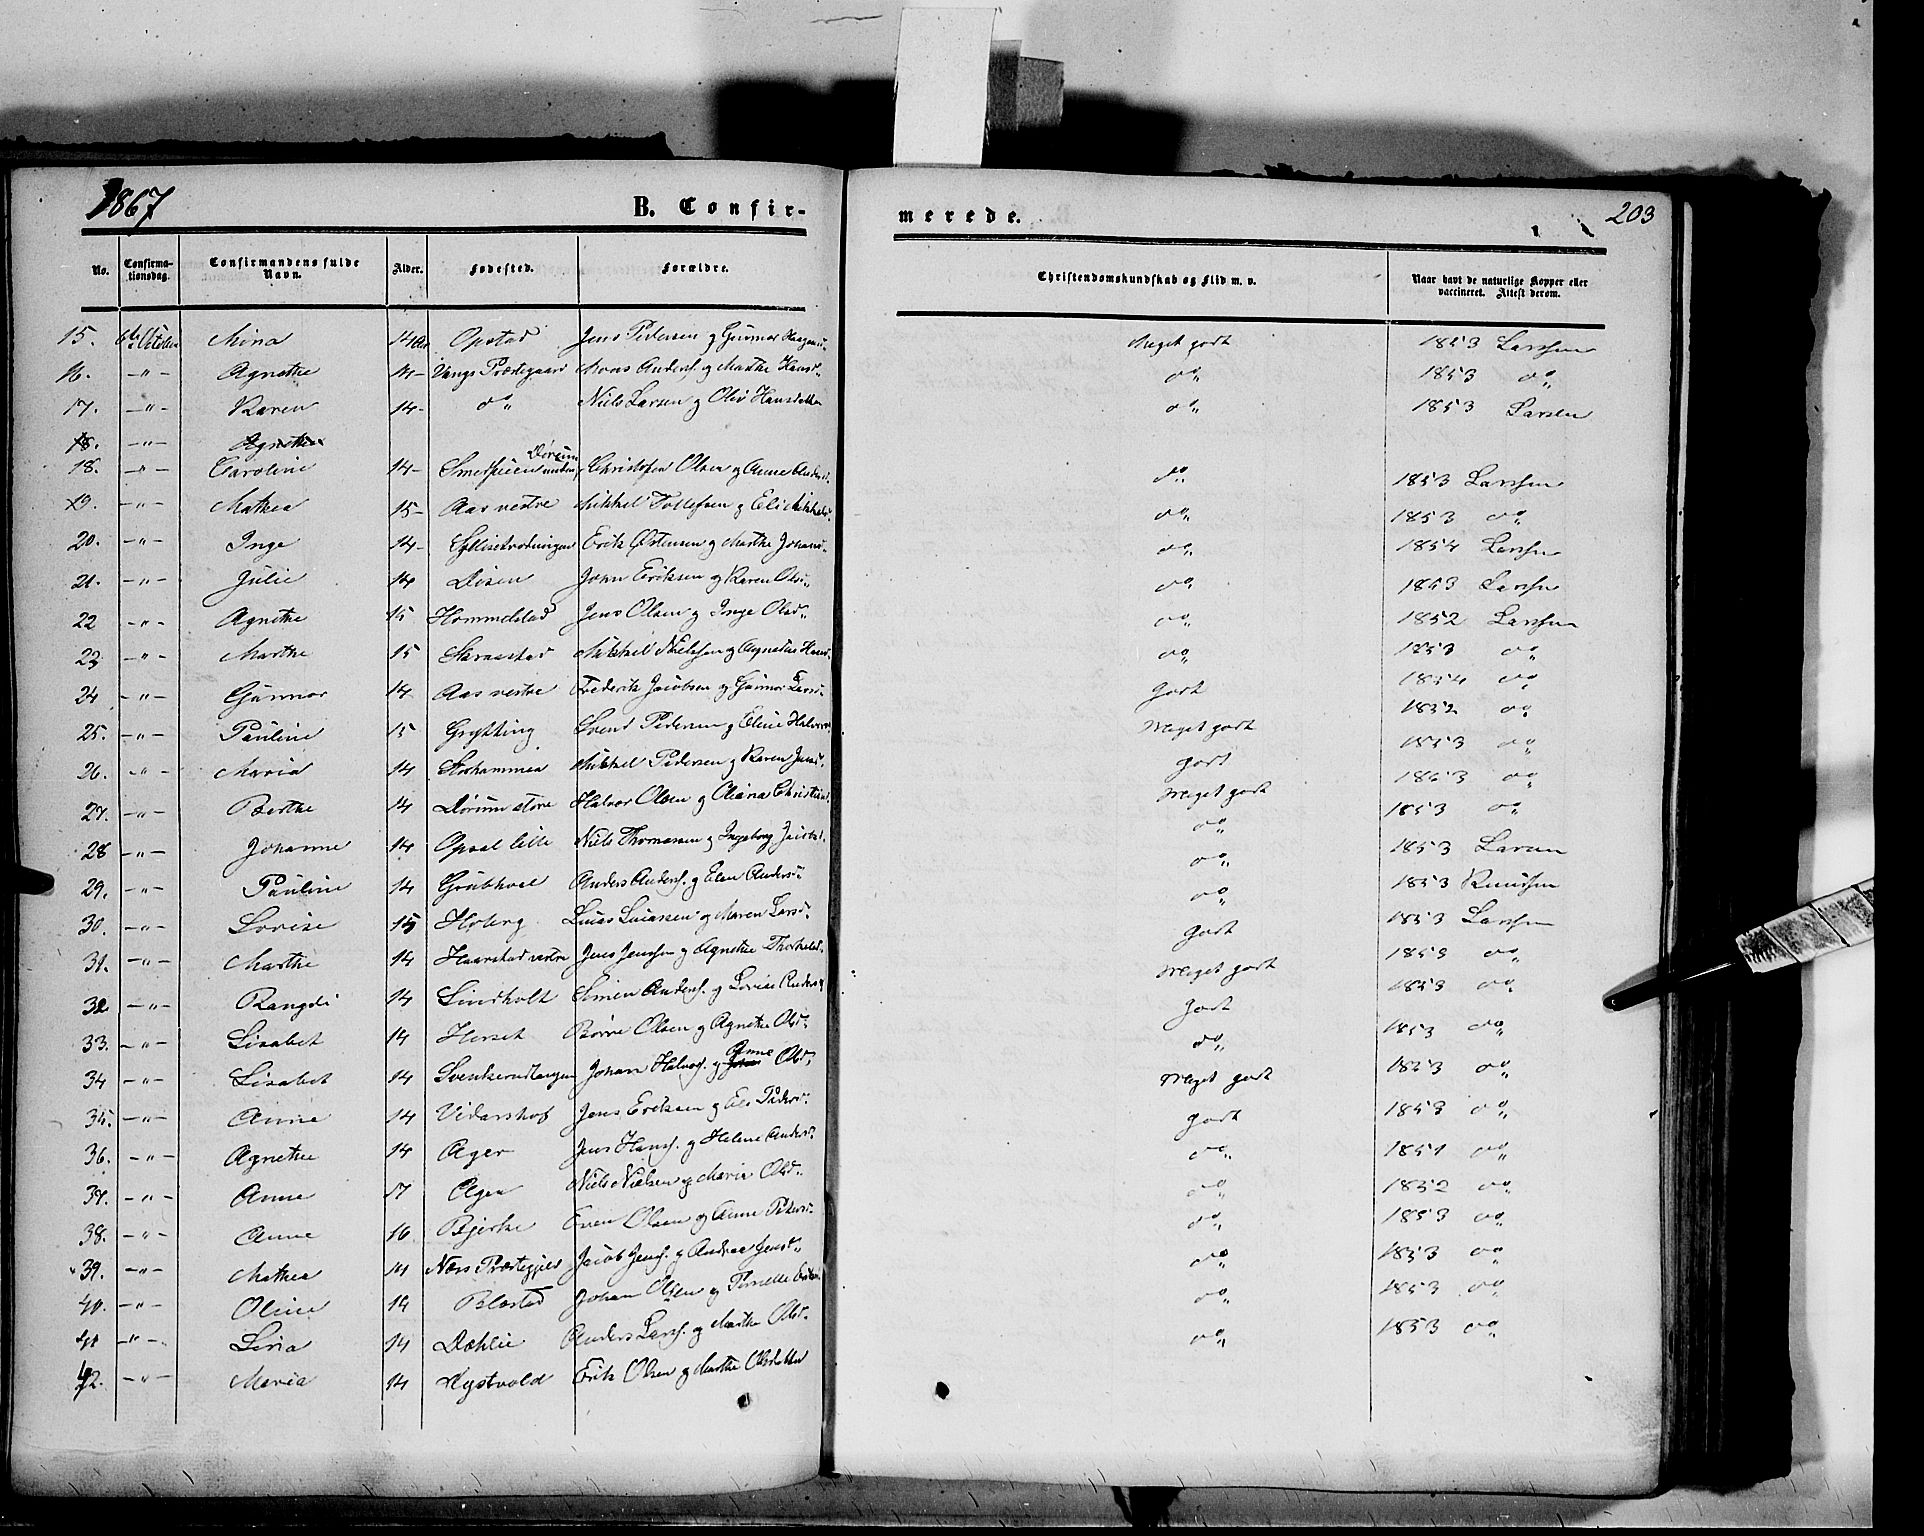 1867
B. Confir-
merede.
203
No. Confirma-tionsdag. Confirmandens fulde Navn. Alder. Fødested. Forældre. Christendomskundskab og Flid m. v. Naar havt de naturlige Kopper eller vaccineret. Attest derom.
15. 6te October Mina 14 Aar Opstad Jens Pedersen og Gunnor Haagensd. Meget godt 1853 Larssen
16. -"- Agnethe 14- Vangs Præstegaard Mons Anders. og Marthe Hansd. do 1853 do
17. -"- Karen 14- do Niels Larsen og Olio Hansdatter do 1853 Larsen
18. -"- Agnethe
18. -"- Caroline 14- Dørum Christofer Olsen og Anne Andersd. do 1853 Larssen
19. -"- Mathea 15- Aas vestre Mikkel Tollefsen og Eli Mikkelsd. do 1853 do
20. -"- Inge 14- Erik Østensen og Marthe Johansd. do 1854 Larssen
21. -"- Julie 14 Disen John Eriksen og Karen Olsd. do 1853 Larssen
22 -"- Agnethe 15 Hommelstad Jens Olsen og Inge Olsd. do 1852 Larssen
23 -"- Marthe 15 Skraastad Mikkel Nielsen og Hansd. do 1853 do
24 -"- Gunnor 14 Aas vestre Frederik Jacobsen og Gunnor Larsd. godt 1854 do
25. -"- Pauline 15 Grytting Svend Pedersen og Eline Halvorsd. Meget godt 1852 do
26. -"- Maria 14 Storhammer Mikkel Pedersen og Karen Jensd. godt 1853 do
27. -"- Berthe 14 Dørum store Halvor Olsen og Oliana Christians. Meget godt 1853 do
28 -"- Johanne 14 Opsal lille Niels Thomassen og Ingeborg Jacobsd. do 1853 do
29. -"- Pauline 14 Grubhoel Anders Anders. og Elen Andersd. do 1853 Larsen
30. -"- Lovise 15 Hoberg Lucas Lucassen og Maren Larsd. do 1853 Knudsen
31. -"- Marthe 14 Haarstad vestre Jens Jenssen og Agnethe Thorkelsd. godt 1853 Larssen
32 -"- Rangdi 14 Lindholt Simen Anders. og Lovise Andersd. Meget godt 1853 do
33. -"- Lisabet 14 Herset Børre Olsen og Agnethe Olsd. godt 1853 do
34 -"- Lisabet 14 Svenkerudtangen Johan Halvors. og Anne Olsd. do 1853 do
35. -"- Anne 14 Vidarshof Jens Eriksen og Eli Pedersd. Meget godt 1853 do
36. -"- Agnethe 14 Ager Jens Hans. og Helene Andersd. godt 1853 do
37. -"- Anne 17 Ager Niels Nielsen og Maria Olsd. do 1851 do
38. -"- Anne 16 Bjerke Even Olsen og Anne Pedersd. do 1852 do
39. -"- Mathea 14 Næs Præstegjeld Jacob Jens. og Andrea Jensd. do 1853 do
40. -"- Oline 14 Blæstad Johan Olsen og Pernelle do 1853 do
41 -"- Lina 14 Dæhlie Anders Lars. og Marthe Olsd. do 1853 do
42. -"- Maria 14 Nystvold Erik Olsen og Marthe Olsdatter do 1853 do